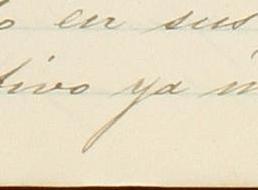 en sus
tivo ya